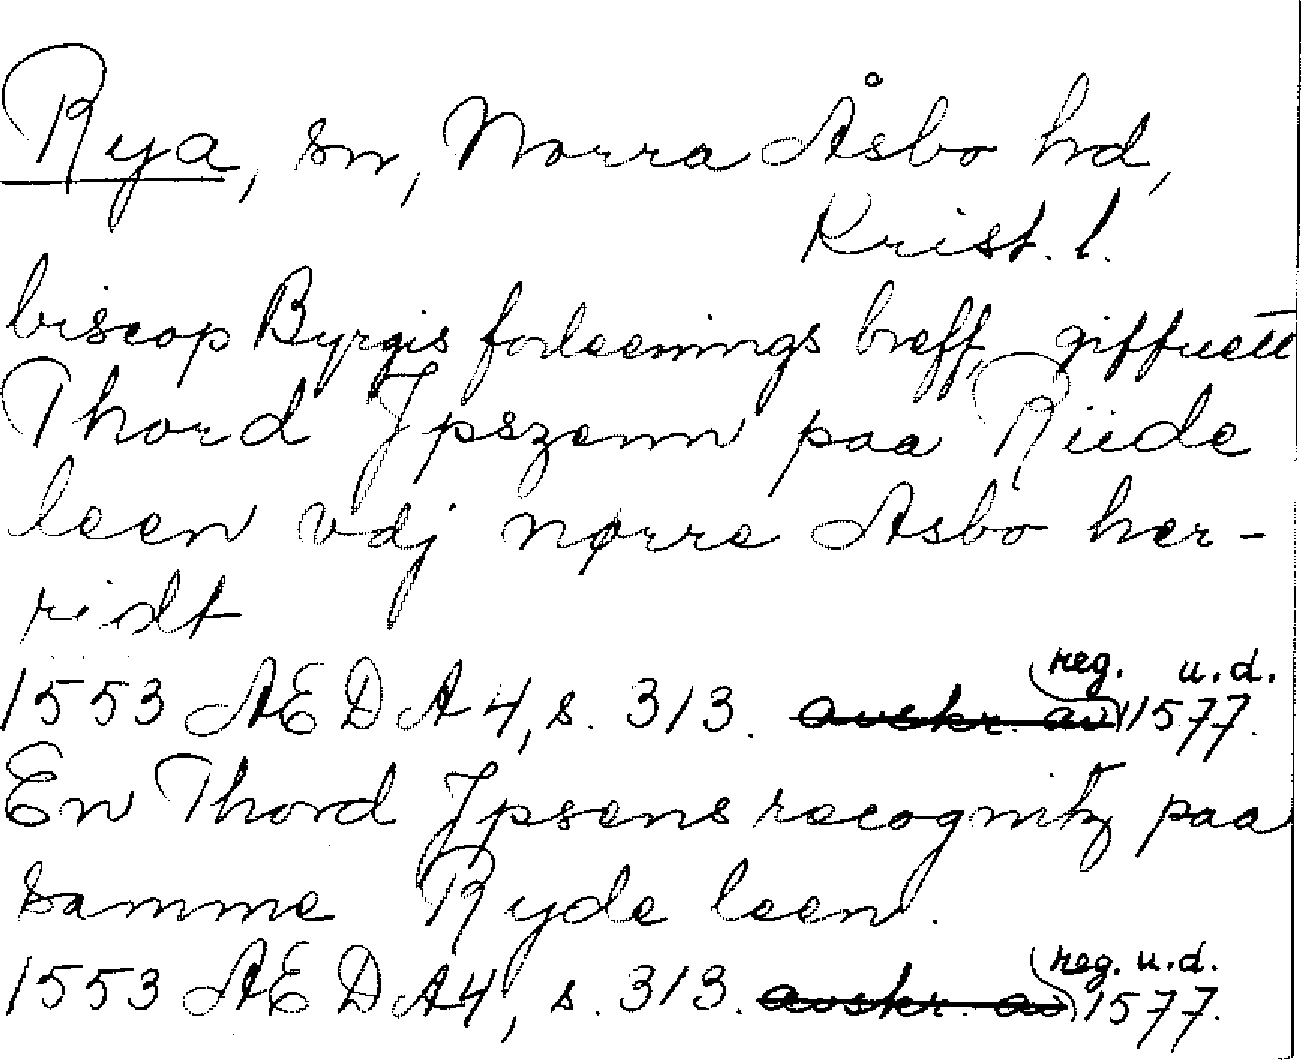 Rya, sn, Norra Åsbo hd,
Krist. l.
biscop Byrgis forleenings breff, giffuett
Thord Jpszenn paa Rüde
leen vdj nørre Asbo her-
ridt
reg. u.d.
1553 AEDA4, s. 313. avskr. av 1577.
En Thord Jpsens recognitz paa
samme Ryde leen.
reg. u.d.
1553 AEDA4, s. 313. avskr. av 1577.